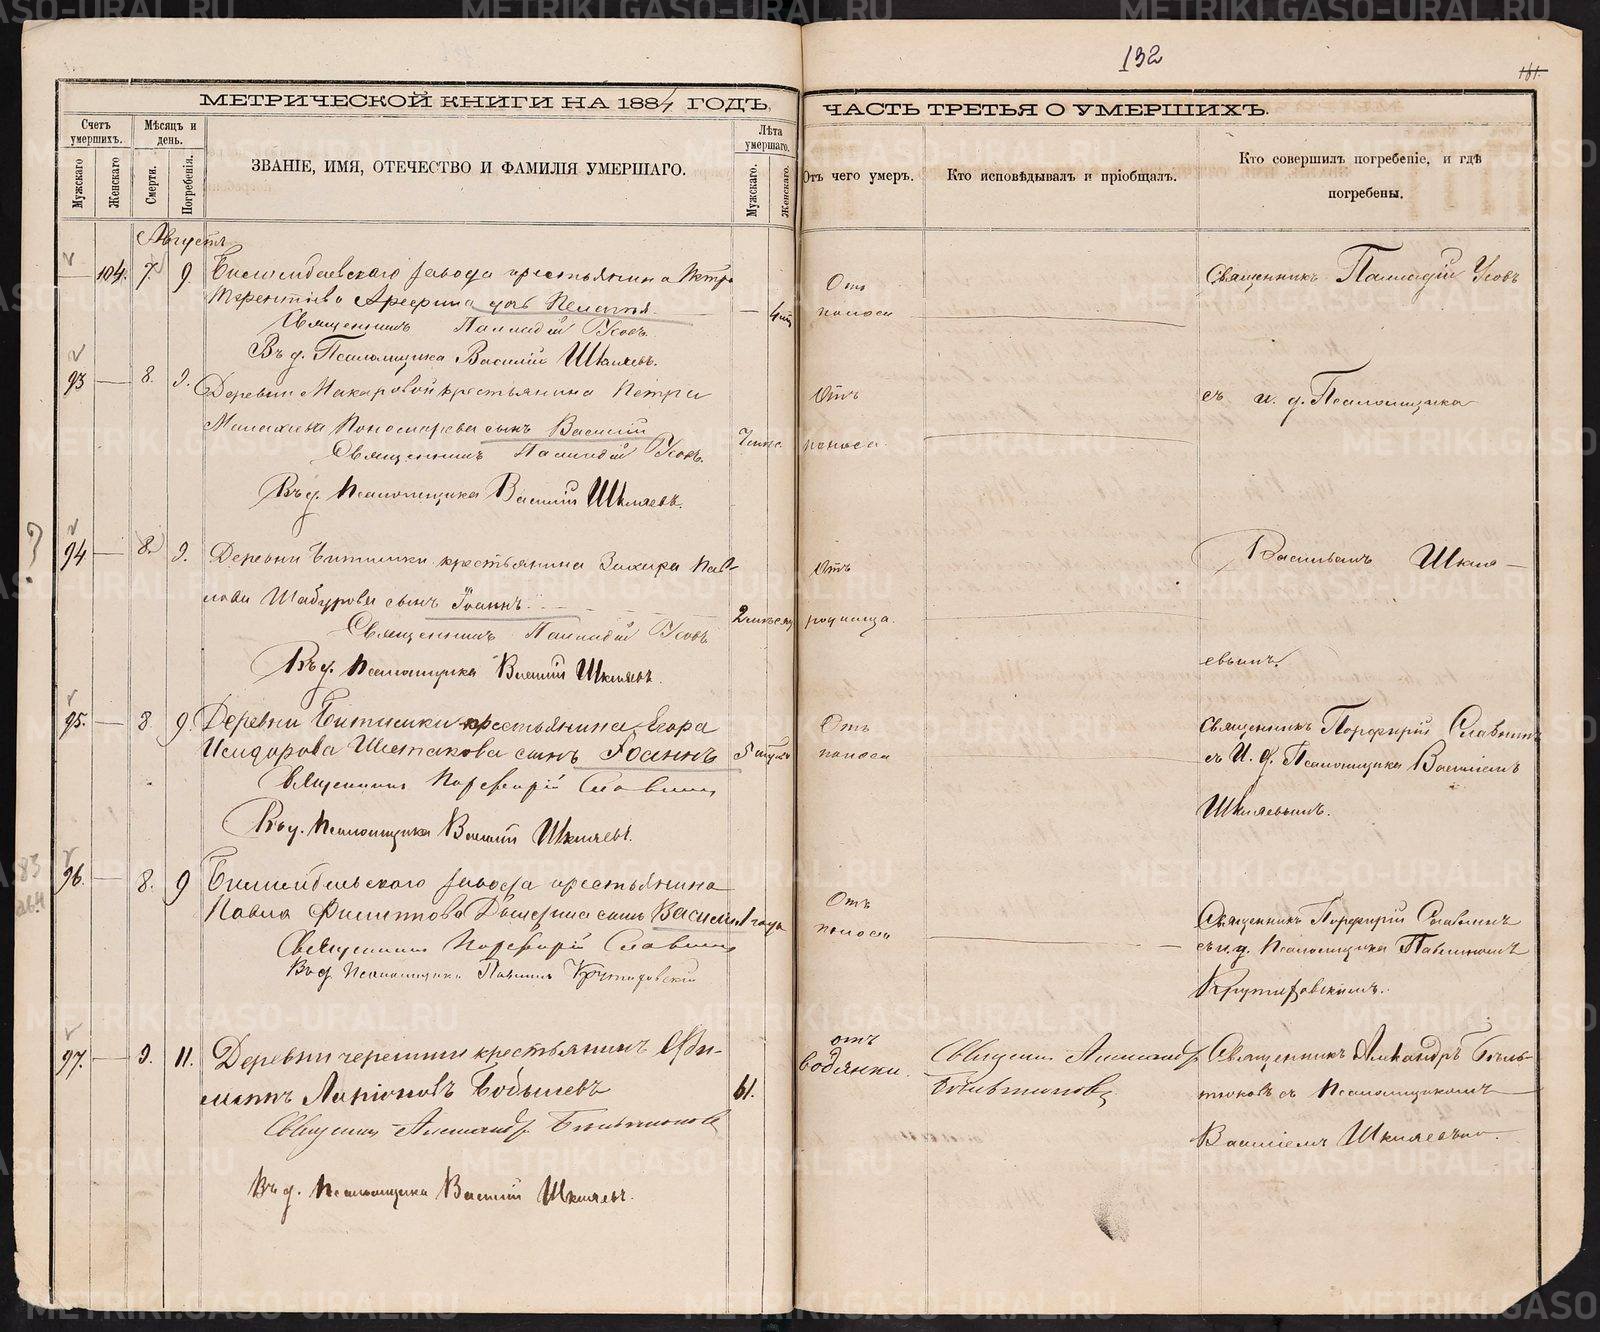 132
181
МЕТРИЧЕСКОЙ КНИГИ НА 1884 ГОДЪ,
ЧАСТЬ ТРЕТЬЯ О УМЕРШИХЪ.
Счетъ умершихъ.
Мужскаго
Женскаго
Мѣсяцъ и день.
Смерти.
Погребенія.
ЗВАНІЕ, ИМЯ, ОТЕЧЕСТВО И ФАМИЛІЯ УМЕРШАГО.
Лѣта умершаго.
Мужскаго.
Женскаго.
Отъ чего умеръ.
Кто исповѣдывалъ и пріобщалъ.
Кто совершилъ погребеніе, и гдѣ
погребены.
Августъ
104. 7. 9. Билимбаевскаго завода крестьянина Петра
Терентіева Арефина дочь Пелагія.
Священникъ Палладій Усовъ.
И. д. Псаломщика Василій Шкляевъ.
Отъ
поноса
Священникъ Палладій Усовъ
93 8. 9. Деревни Макаровой крестьянина Петра
Малахіева Пономарева сынъ Василій
Священникъ Палладій Усовъ.
И. д. Псаломщика Василій Шкляевъ.
Отъ
поноса.
съ и. д. Псаломщика
94 8. 9. Деревни Битимки крестьянина Захара Пав-
лова Шабурова сынъ Іоаннъ.
Священникъ Палладій Усовъ
И. д. Псаломщика Василій Шкляевъ.
Отъ
родимца.
Васильемъ Шкля-
евымъ.
95. 8 9. Деревни Битимки крестьянина Егора
Исидорова Шестакова сынъ Іоаннъ
Священникъ Порфирій Славнинъ
И. д. Псаломщика Василій Шкляевъ.
Отъ
поноса
Священникъ Порфирій Славнинъ
съ И. д. Псаломщика Василіемъ
Шкляевымъ.
83
96. 8. 9 Билимбаевскаго завода крестьянина
Павла Филиппова сынъ Василій 1 года
Священникъ Порфирій Славнинъ
И. д. Псаломщика Павлинъ Крутиховскій
Отъ
поноса
Священникъ Порфирій Славнинъ
съ и. д. Псаломщика Павлиномъ
Крутиховскимъ.
97. 9. 11. Деревни Черемши крестьянинъ Ефи-
Ларіоновъ Бобышевъ
61.
Священникъ Александръ Бѣльтюковъ
И. д. Псаломщика Василій Шкляевъ.
отъ
водянки.
Священникъ Александръ
Бѣльтюковъ
Священникъ Александръ Бѣль-
тюковъ съ Псаломщикомъ
Василіемъ Шкляевымъ.
METRIKI.GASO-URAL.RU